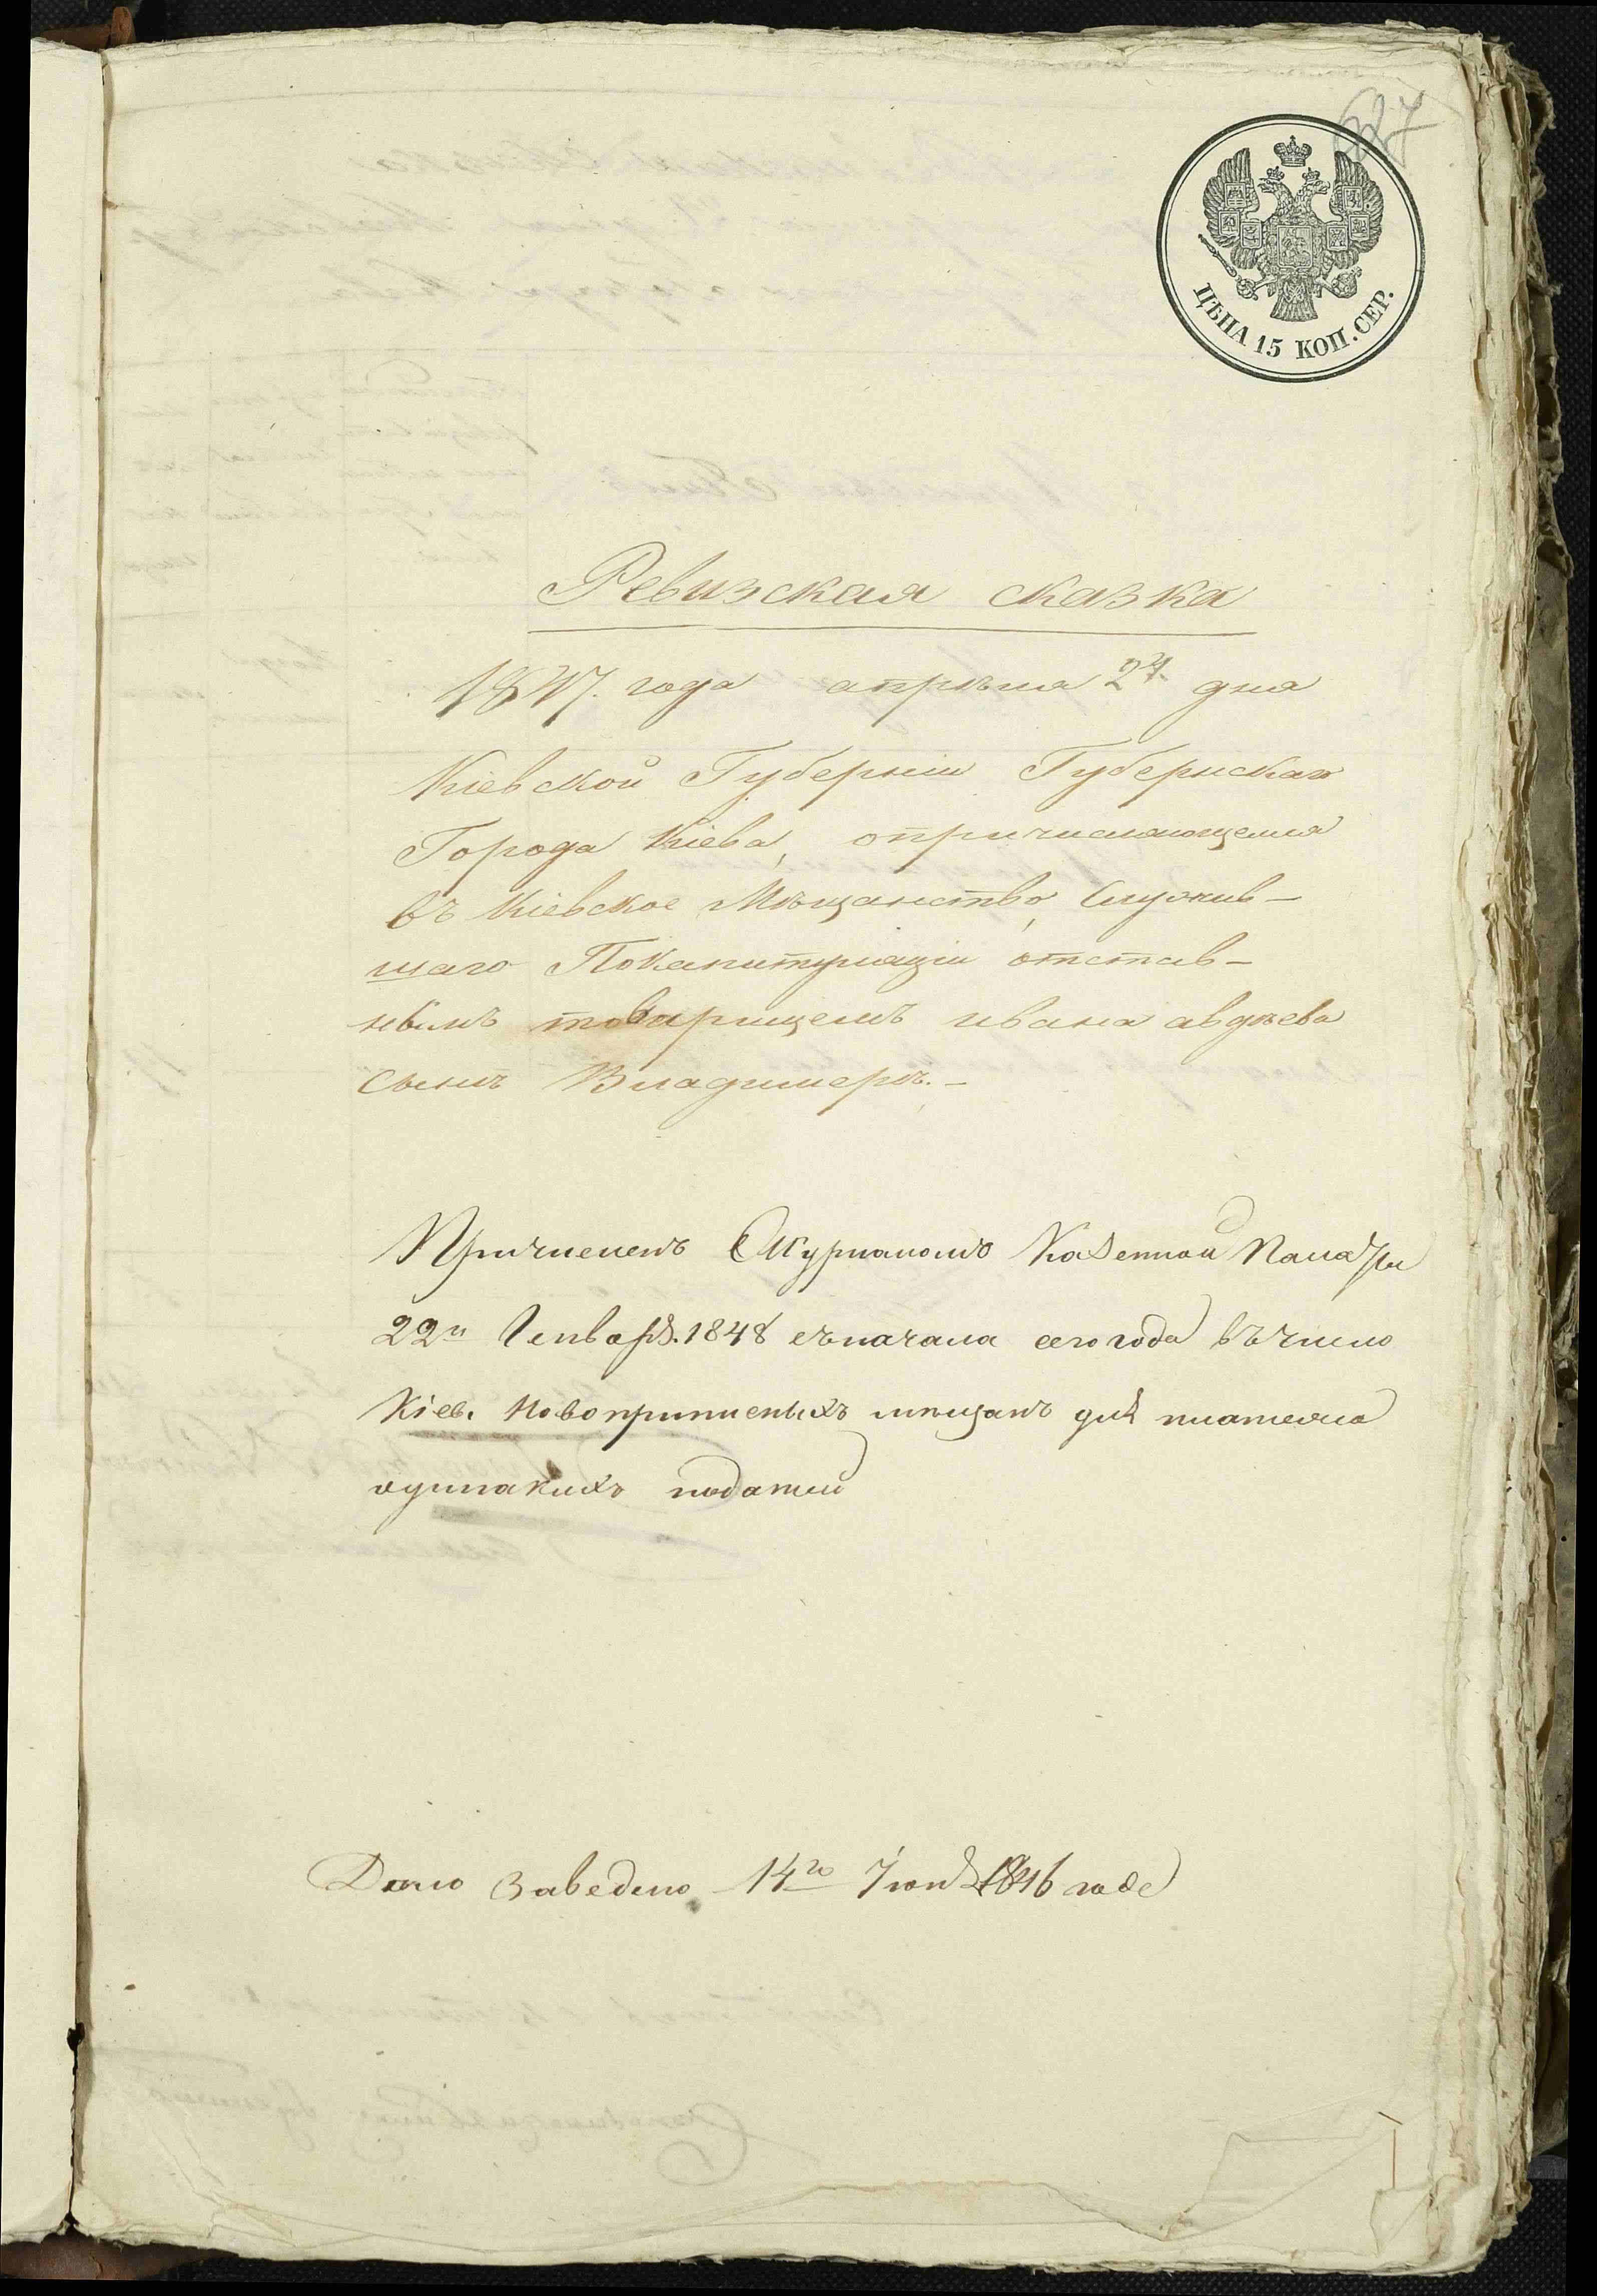 627
ЦѢНА 15 КОП. СЕР.
Ревизская сказка
1847. года апрѣля 24 дня
Кіевской Губерніи Губернскаго
Города Кіева, опричисляющемся
въ Кіевское Мѣщанство, Служив-
шаго Покапитуляціи отстав-
нымъ товарищемъ ивана авдѣева
сынъ Владимеръ.-
Причисленъ Журналомъ Казенной Палаты
22го Генваря. 1848 съ начала сего года въ число
Кіев. Новопричисленыхъ мѣщанъ для платежа
одинакихъ податей
Дело Заведено 14го Іюня 1846 года